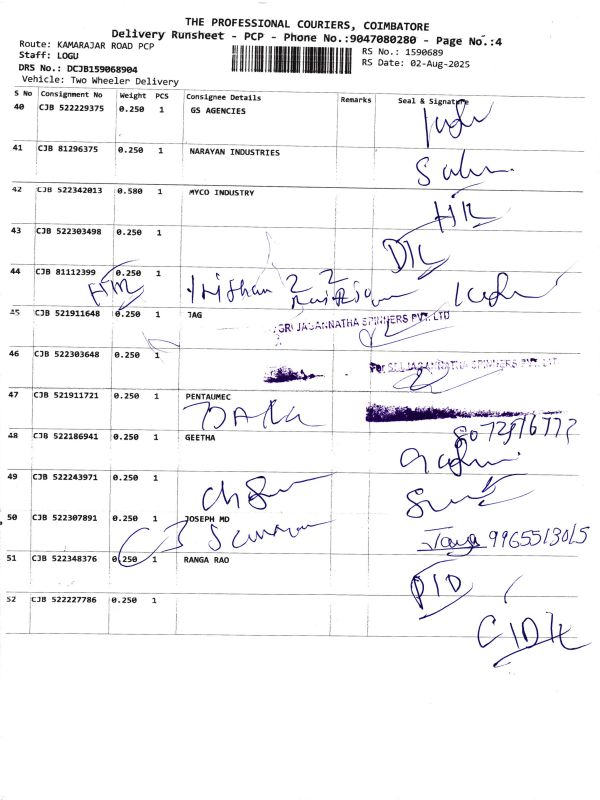 THE PROFESSIONAL COURIERS, COIMBATORE
Delivery Runsheet - PCP - Phone No.:9047080280 - Page No.:4
Route: KAMARAJAR ROAD PCP
Staff: LOGU
DRS No.: DCJB159068904
Vehicle: Two Wheeler Delivery
RS No.: 1590689
RS Date: 02-Aug-2025
S No Consignment No Weight PCS Consignee Details Remarks Seal & Signature
40 CJB 522229375 0.250 1 GS AGENCIES
41 CJB 81296375 0.250 1 NARAYAN INDUSTRIES
42 CJB 522342013 0.580 1 MYCO INDUSTRY
43 CJB 522303498 0.250 1
44 CJB 81112399 0.250 1
45 CJB 521911648 0.250 1 JAG
SRI JAGANNATHA SPINNERS PVT. LTD
46 CJB 522303648 0.250 1
For SRI JAGANNATHA SPINNERS PVT. LTD
47 CJB 521911721 0.250 1 PENTAUMEC
48 CJB 522186941 0.250 1 GEETHA
49 CJB 522243971 0.250 1
50 CJB 522307891 0.250 1 JOSEPH MD
9965513015
51 CJB 522348376 0.250 1 RANGA RAO
52 CJB 522227786 0.250 1